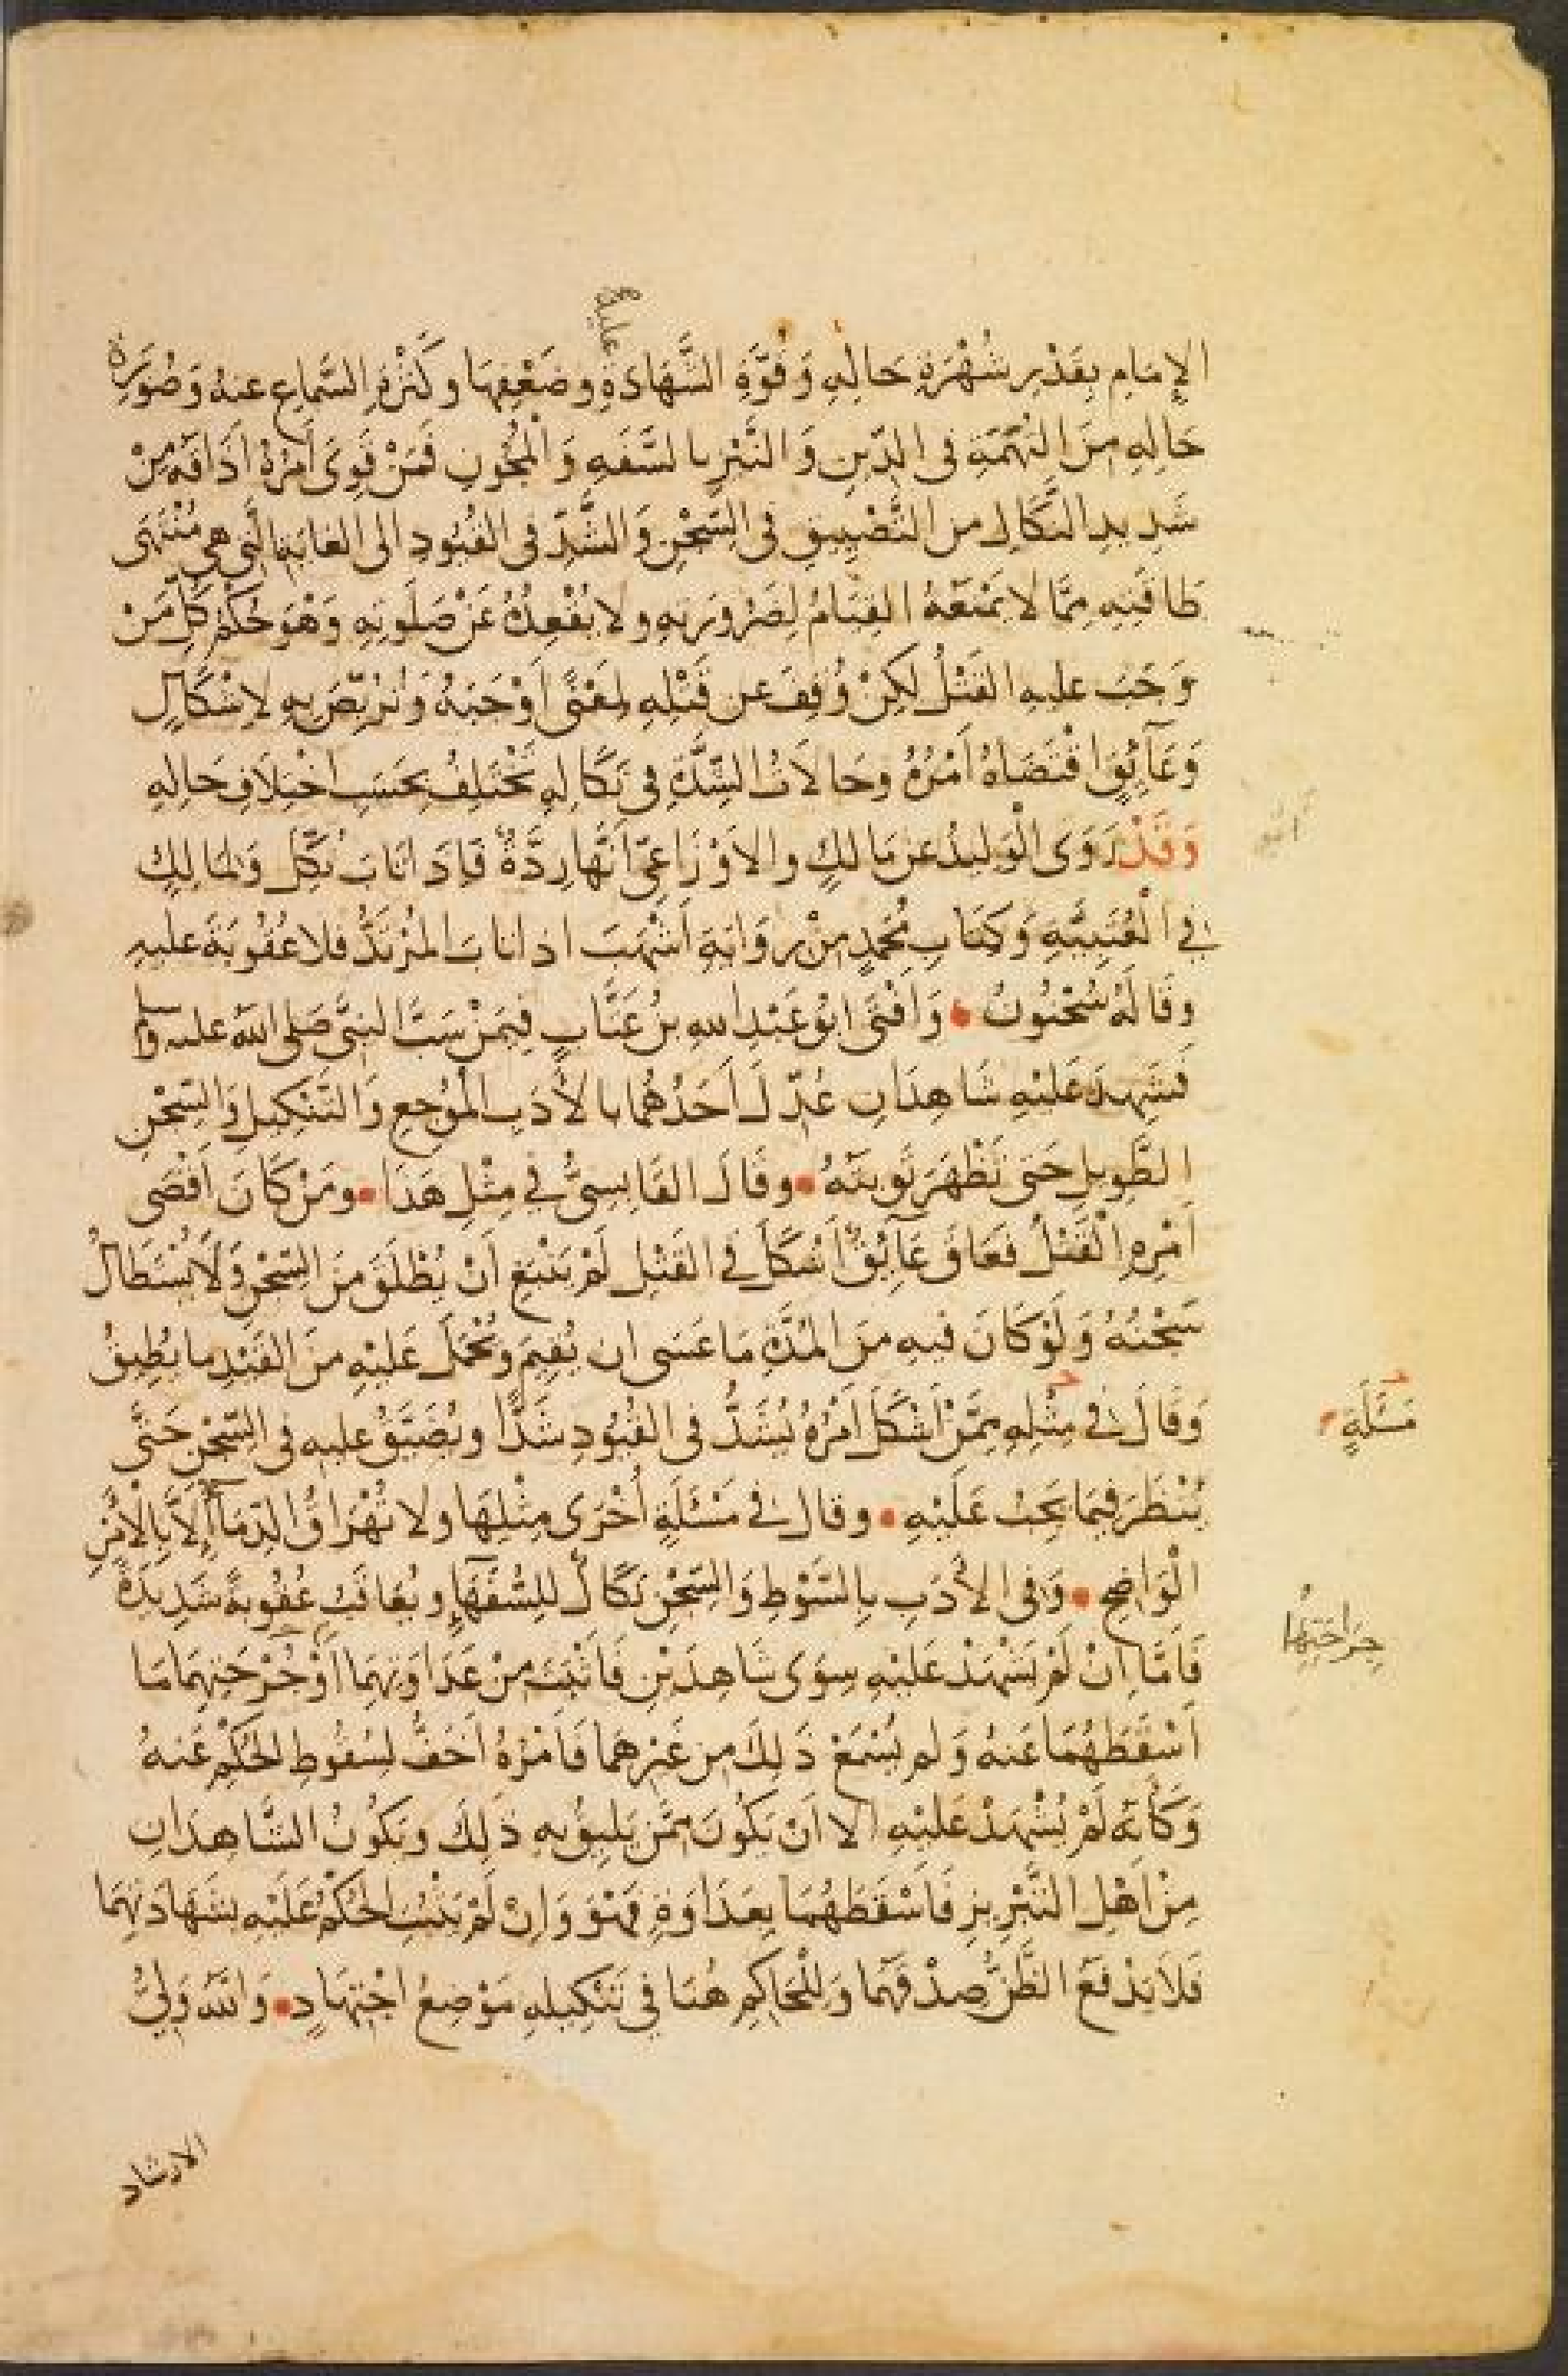 عليه
الإمَامِ بِقَدْرِ شُهْرَةِ حَالِهِ وَقُوَّةِ الشَّهَادَةِ وضَعْفِهَا وكَثْرَةِ السَّمَاعِ عنهُ وَصُورَةِ
حَالِهِ مِنَ التُّهَمَةِ فى الدِّينِ وَالنَّبْزِ بالسَّفَهِ وَالْمُجُونِ فَمَنْ قَوِىَ أَمْرُهُ أَذَاقَهُ مِنْ
شَدِيدِ النَّكَالِ من التَّضْيِيقِ فى السِّجْنِ وَالشَّدِّ فى القُيُودِ الى الغايةِ التى هى مُنْتَهَى
طَاقَتِهِ مِمَّا لا يَمْنَعُهُ القِيَامُ لِضَرُورَتِهِ ولا يُقْعِدُهُ عَنْ صَلَوتِهِ وَهْوَ حُكْمُ كُلِّ مَنْ
وَجَبَ عليهِ القَتْلُ لَكِنْ وُقِفَ عن قَتْلِهِ لِمَعْنًى أَوْجَبَهُ وَتُرُبِّصَ بِهِ لإِشْكَالٍ
وَعَآئِقٍ اقْتَضَاهُ أَمْرُهُ وحَالاَتُ الشِّدَّةِ فى نَكَالِهِ تَخْتَلِفُ بِحَسَبِ اخْتِلاَفِ حَالِهِ
وَقَدْ رَوَى الْوَلِيدُ عن مَالِكٍ والاَوْزَاعِىِّ أَنَّها رِدَّةٌ فَإِذَا تَابَ نُكِّلَ وَلمَالِكٍ
فى الْعُتْبِيَّهِ وَكِتَابِ مُحَمَّدٍ مِنْ رِوَايَةِ أَشْهَبَ اذا تابَ المُرْتَدُّ فلا عُقُوبَةَ عليهِ
وقَالَهُ سُحْنُونُ • وَافْتَى ابُو عَبْدِ اللهِ بنُ عَتَّابٍ فِيمَنْ سَبَّ النبىَّ صَلى اللهُ عليه وسلم
فَشَهِدَ عَلَيْهِ شَاهِدَانِ عُدِّلَ أَحَدُهُمَا بالأَدَبِ المُوجِعِ وَالتَّنْكِيلِ وَالسِّجْنِ
الطَّوِيلِ حَتى تَظْهَرَ تَوبَتُهُ • وقَالَ القَابِسِىُّ فى مِثْلِ هَذَا • ومَنْ كَانَ اقْصَى
أَمْرِهِ الْقَتْلُ فَعَاقَ عَآئِقٌ أَشْكَلَ فى القَتْلِ لَمْ يَنْبَغِ أَنْ يُطْلَقَ مِنَ السِّجْنِ وَلاَ يُسْتَطَالُ
سَجْنُهُ وَلَوْ كَانَ فيهِ منَ المُدَّةِ مَا عَسَى ان يُقِيمَ وَيُحْمَلَ عَلَيْهِ منَ القَيْدِ ما يُطِيقُ
وَقَالَ فى مِثْلِهِ مِمَّنْ أَشْكَلَ أَمْرُهُ يُشَدُّ فى القُيُودِ شَدًّا ويُضَيَّقُ عليهِ فى السِّجْنِ حَتَّى
مَسْئَلَةٍ
يُنْظَرَ فِيمَا يَجِبُ عَلَيْهِ • وقال فى مَسْئَلَةٍ أُخْرَى مِثْلِهَا ولا تُهْرَاقُ الدِّمَآءُ إِلاَّ بِالأَمْرِ
الْوَاضِحِ • وَفى الأَدَبِ بِالسَّوْطِ وَالسِّجْنِ نَكَالٌ لِلسُّفَهَآءِ ويُعَاقَبُ عُقُوبَةً شَدِيدَةً
جراحتِهما
فَامَّا إنْ لَمْ يَشْهَدْ عَلَيْهِ سِوَى شَاهِدَيْنِ فَاثْبَتَ مِنْ عَدَاوَتِهِمَا أَوْ جُرْحَتِهِمَا مَا
أَسْقَطَهُمَا عَنهُ وَلم يُسْمَعْ ذَلِكَ مِن غَيْرِهِمَا فَأَمْرُهُ أَخَفُّ لِسُقُوطِ الحُكْمِ عَنهُ
وَكَأَنَّهُ لَمْ يُشْهَدْ عَلَيْهِ الا أَنْ يَكُونَ مِمَّنْ يَلِيقُ بِهِ ذَلِكَ ويَكُونُ الشَّاهِدَانِ
مِنْ أَهْلِ التَّبْرِيزِ فَاَسْقَطَهُمَا بِعَدَاوَةٍ فَهْوَ وَإِنْ لَمْ يَثْبُتِ الحُكْمُ عَلَيْهِ بِشَهَادَتِهِمَا
فَلاَ يَدْفَعُ الظَّنُّ صِدْقَهُمَا وَلِلْحَاكِمِ هُنَا فى تَنْكِيلِهِ مَوْضِعُ اجْتِهَادٍ • وَاللَّهُ وَلِىُّ
الارشاد